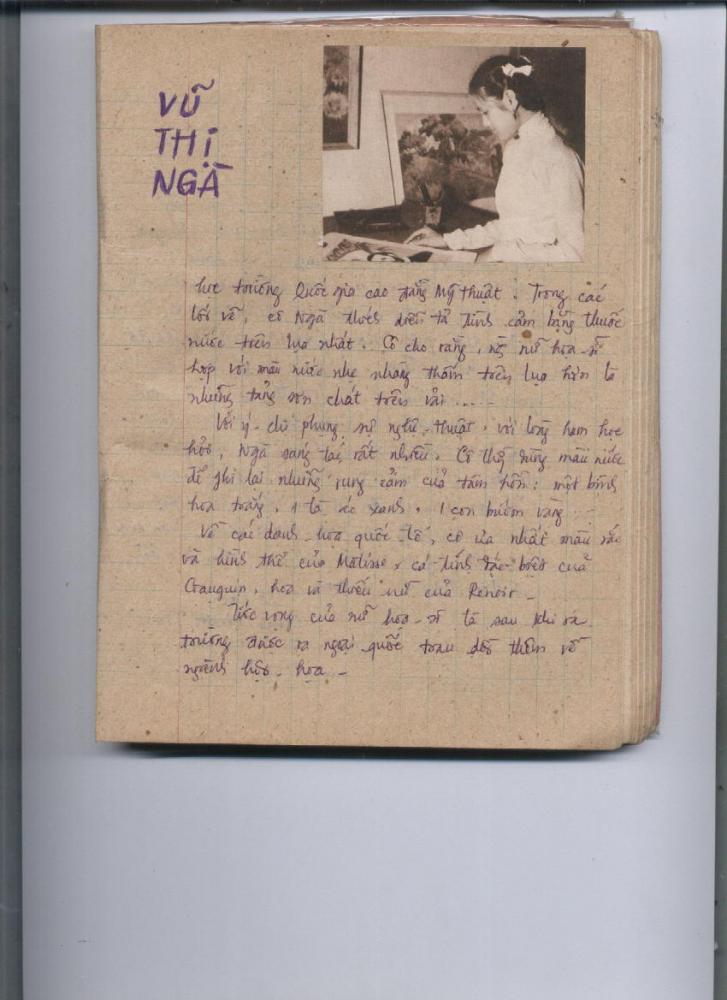 VŨ
THỊ
NGÀ
học trường Quốc gia cao đẳng Mỹ thuật. Trong các
lối vẽ, cô Ngà thích diễn tả tình cảm bằng thuốc
nước trên lụa nhất. Cô cho rằng, nữ họa-sĩ
hợp với màu nước nhẹ nhàng thấm trên lụa hơn là
những tảng sơn chát trên vải ....
Với ý-chí phụng sự nghệ-thuật, với lòng ham học
hỏi, Ngà sáng tác rất nhiều. Cô dùng màu nước
để ghi lại những rung cảm của tâm hồn: một bông
hoa trắng, 1 lá xanh, 1 con bướm vàng ...
Về các danh-họa quốc tế, cô ưa nhất màu sắc
và hình thể của Matisse, cá tính đặc-biệt của
Gauguin, hoa và thiếu nữ của Renoir -
Ước vọng của nữ họa-sĩ là sau khi ra
trường được ra ngoại quốc trau dồi thêm về
ngành hội-họa -